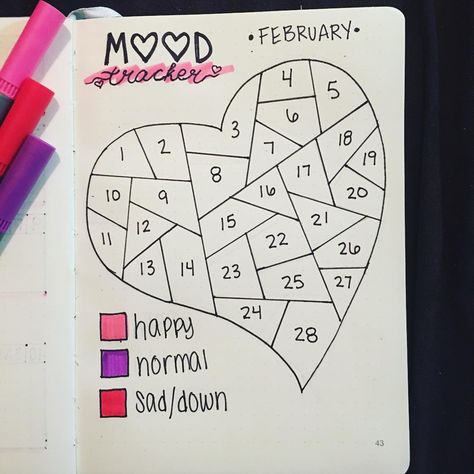 MOOD
tracker
•FEBRUARY•
4
5
3
6
1
2
7
18
19
8
16
17
20
10
9
15
21
11
12
22
26
13
14
23
25
27
24
28
happy
normal
sad/down
43